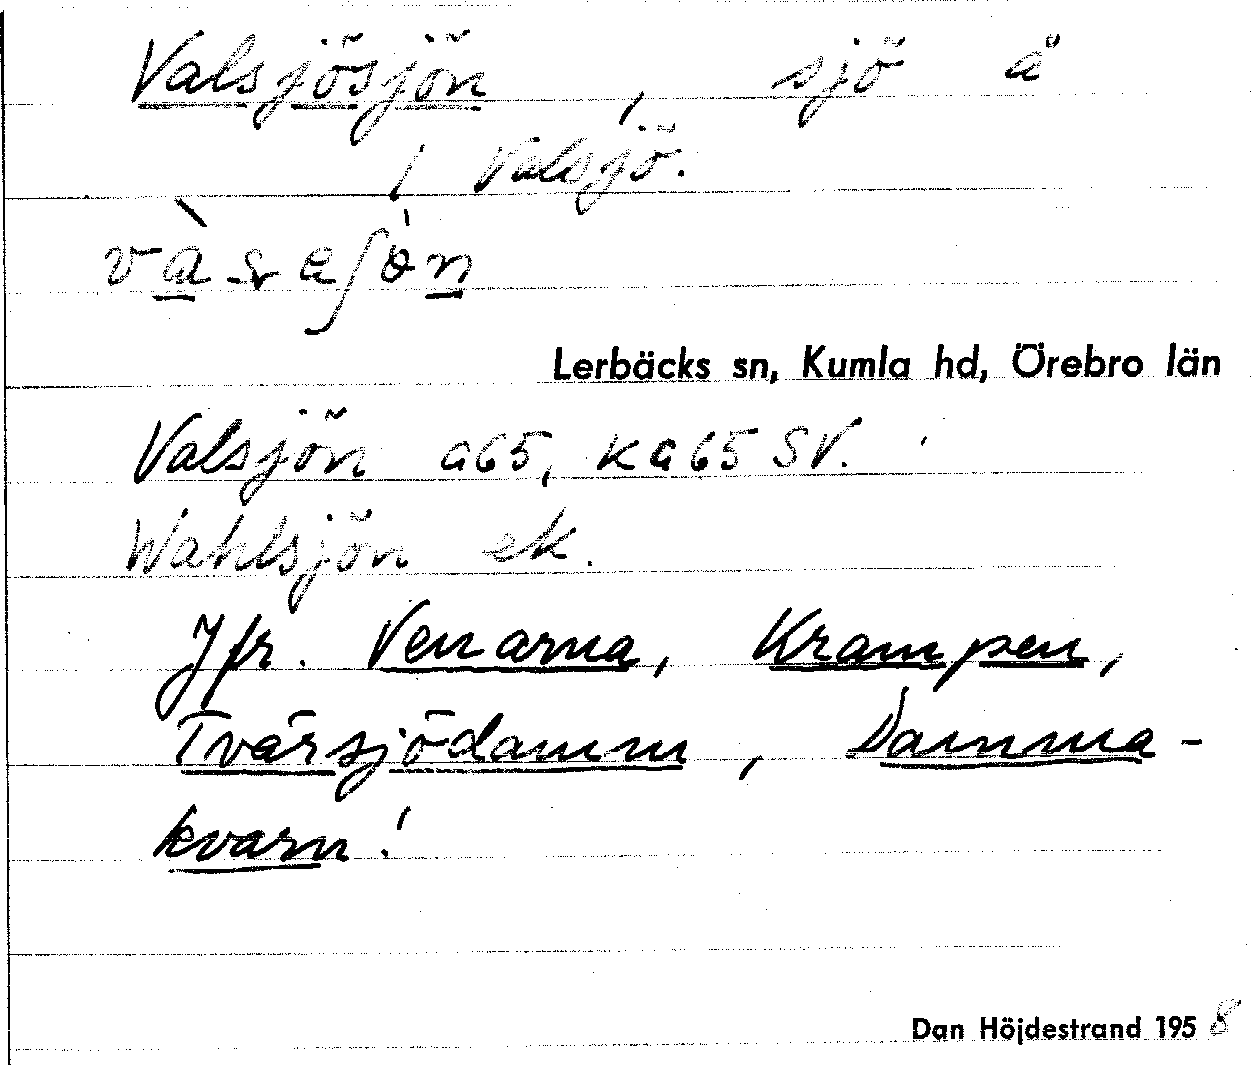 Valsjösjön, sjö å
/ Valsjö.
Lerbäcks sn, Kumla hd, Örebro län
Valsjön a65, ka65 SV.
Wahlsjön ek.
Jfr. Venarna, Krampen,
Tvärsjödamm, Damma-
kvarn!
Dan Höjdestrand 1958